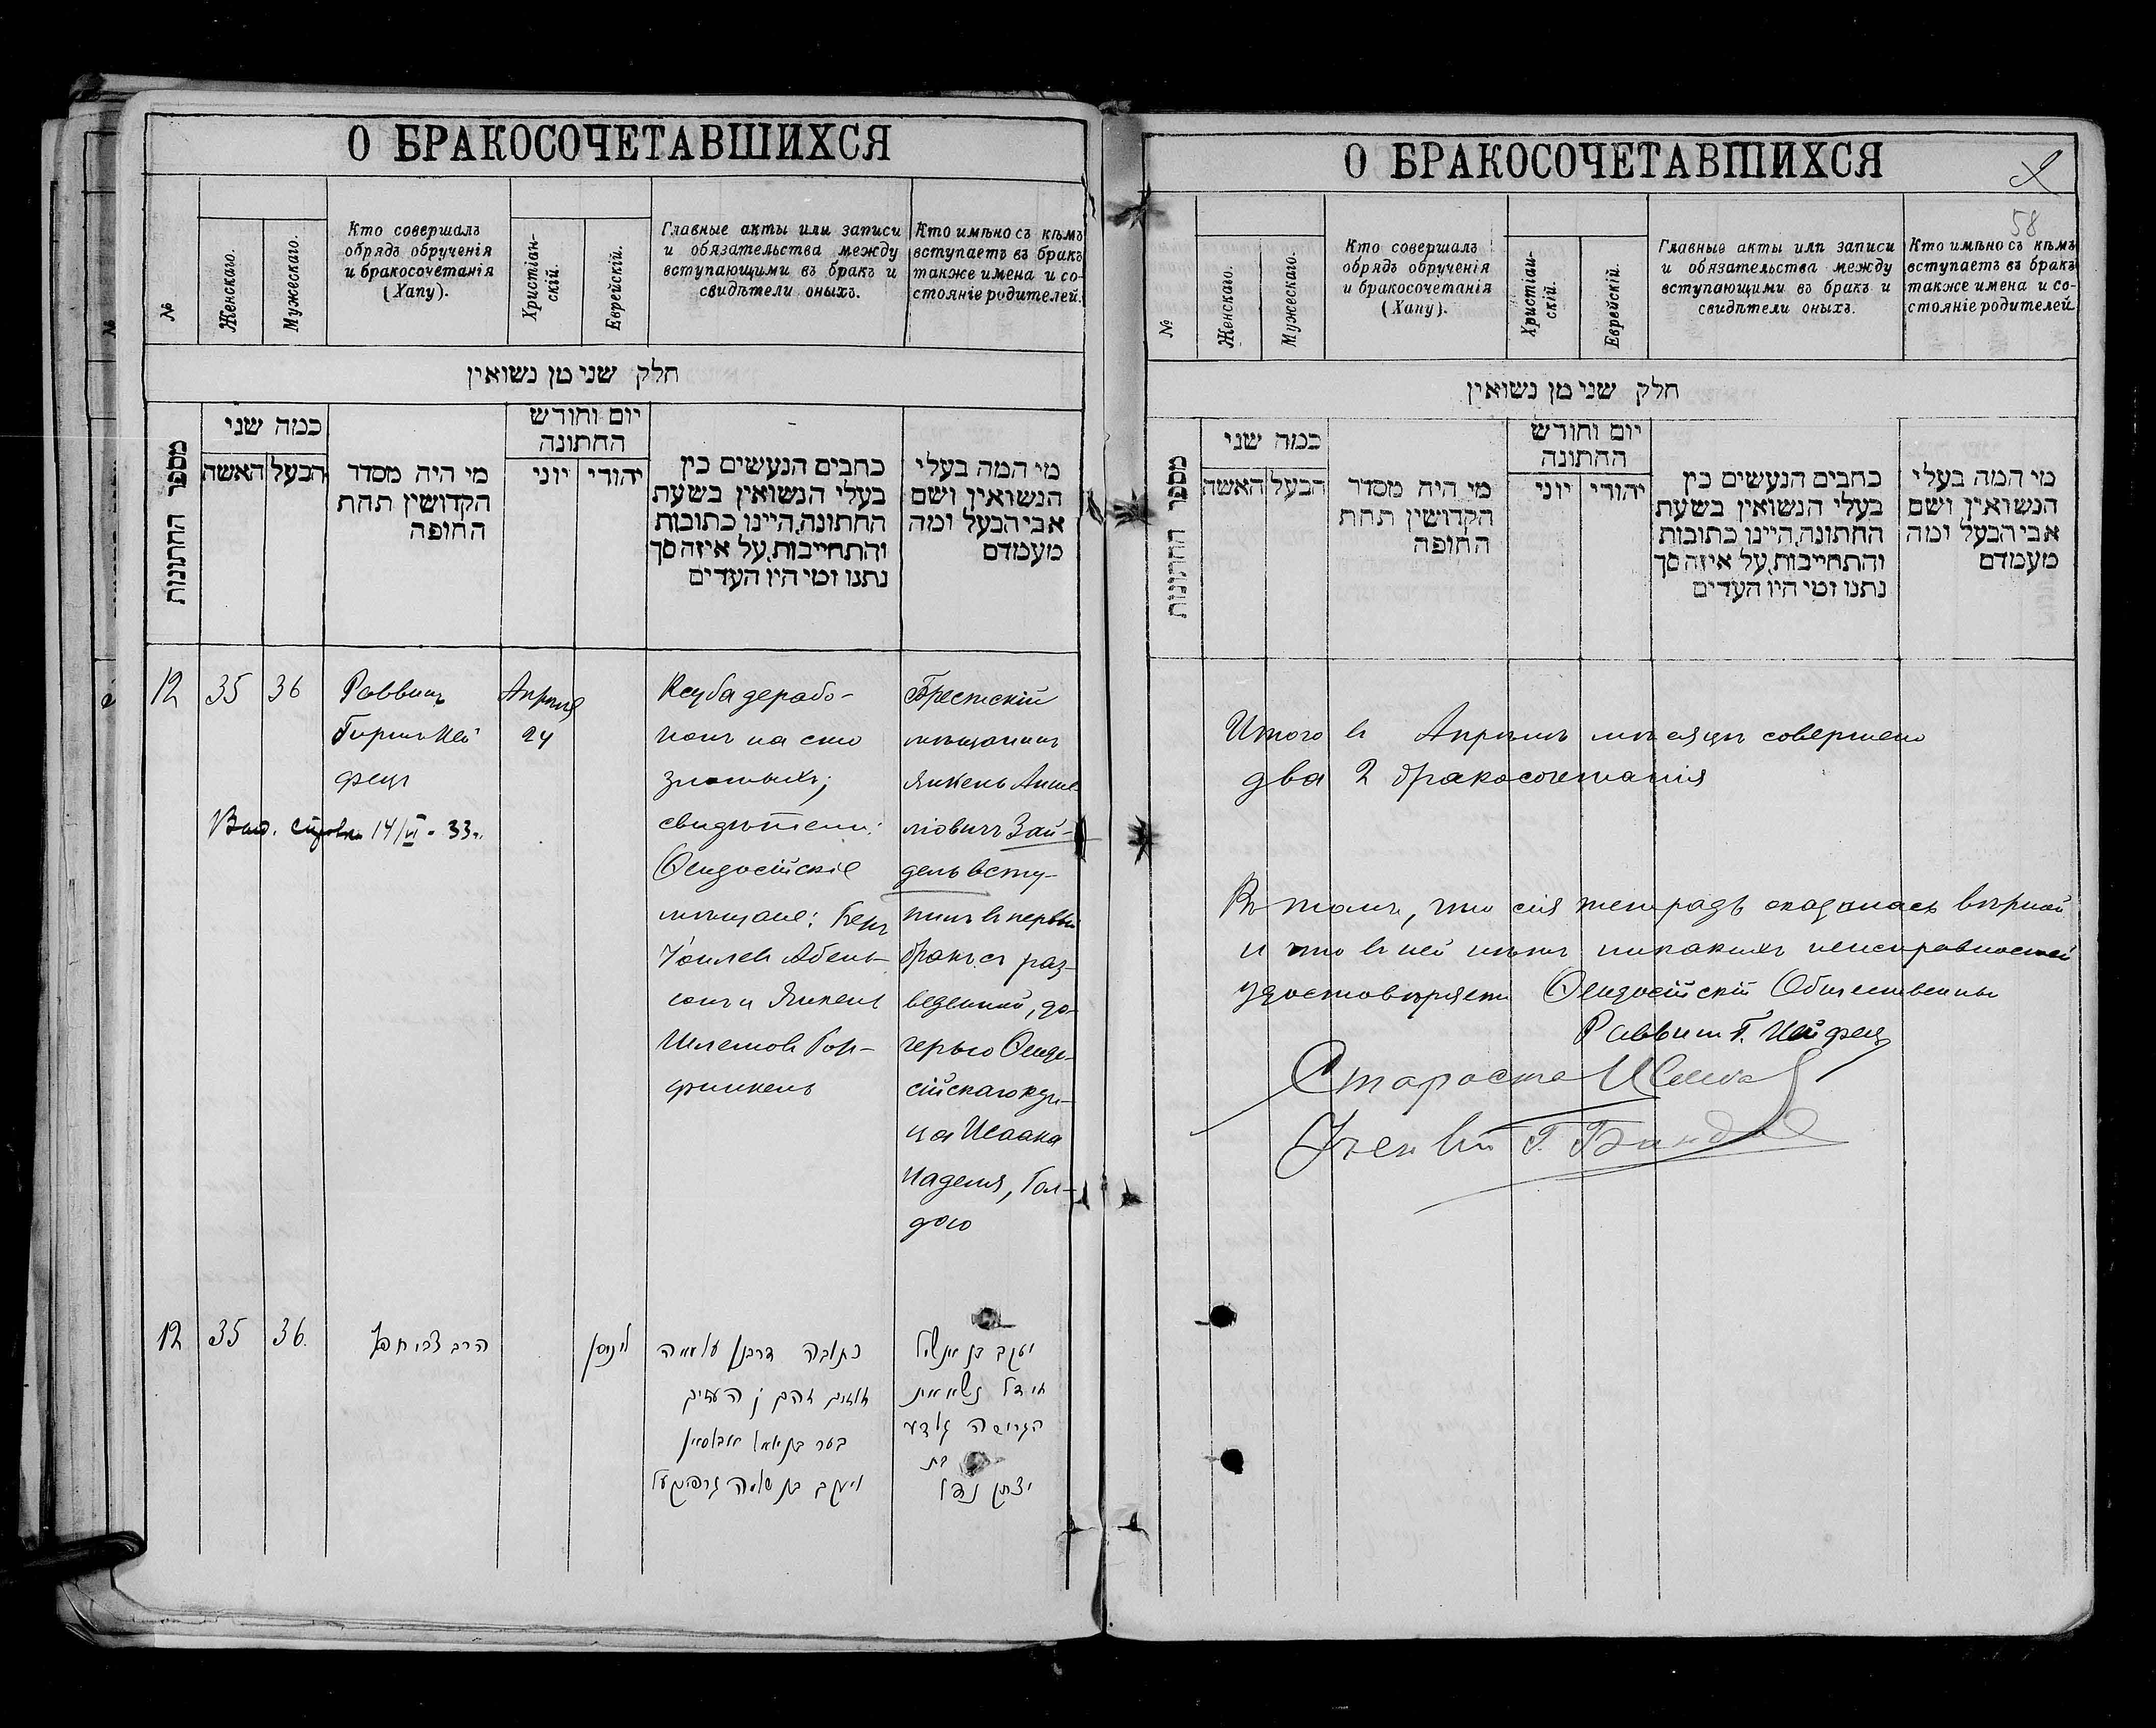 О БРАКОСОЧЕТАВШИХСЯ
№
Женскаго.
Мужескаго.
Кто совершалъ
обрядъ обрученія
и бракосочетанія
(Хапу).
Христіан-
скій.
Еврейскій.
Главные акты или записи
и обязательства между
вступающими въ бракъ и
свидѣтели оныхъ.
Кто имѣно съ кѣмъ
вступаетъ въ бракъ
также имена и со-
стояніе родителей.
חלק שני מן נשואין
מספר החתונות
כמה שני
האשה
הבעל
מי היה מסדר
הקדושין תחת
החופה
יום וחודש
החתונה
יוני
יהודי
כתבים הנעשים בין
בעלי הנשואין בשעת
החתונה,היינו כתובות
והתחייבות,על איזה סך
נתנו ומי היו העדים
מי המה בעלי
הנשואין ושם
אבי הבעל ומה
מעמדם
12
35
36
Раввинъ
Гиршъ Ней
фецъ
Апрѣля
24
Ксуба дерабо-
нонъ на сто
злотыхъ;
свидѣтели:
Ѳеодосійскіе
мѣщане: Беръ
Іоилевъ Абель-
сонъ и Янкель
Шлемовъ Гор-
финкель
Брестскій
мѣщанинъ
Янкель Анше-
ліовичъ Зай-
дель всту-
пилъ въ первый
бракъ съ раз-
веденной, до-
черью Ѳеодо-
сійскаго куп-
ца Исаака
Наделя, Гол-
дою
Выд. справка 14/VI - 33 г.
12
35
36.
הרב צבי חפץ
כתובה דרבנן על מאה
זהובים
יעקב בן אנשיל
זיידל נשא את
הגרושה גאלדע
בת
יצחק נאדל
О БРАКОСОЧЕТАВШИХСЯ
58
№
Женскаго.
Мужескаго.
Кто совершалъ
обрядъ обрученія
и бракосочетанія
(Хапу).
Христіан-
скій.
Еврейскій.
Главные акты или записи
и обязательства между
вступающими въ бракъ и
свидѣтели оныхъ.
Кто имѣно съ кѣмъ
вступаетъ въ бракъ
также имена и со-
стояніе родителей.
חלק שני מן נשואין
מספר החתונות
כמה שני
האשה
הבעל
מי היה מסדר
הקדושין תחת
החופה
יום וחודש
החתונה
יוני
יהודי
כתבים הנעשים בין
בעלי הנשואין בשעת
החתונה,היינו כתובות
והתחייבות,על איזה סך
נתנו ומי היו העדים
מי המה בעלי
הנשואין ושם
אבי הבעל ומה
מעמדם
Итого въ Апрѣлѣ мѣсяцѣ совершено
два 2 бракосочетанія
Въ томъ, что сія тетрадь оказалась вѣрной
и что въ ней нѣтъ никакихъ неисправностей
удостовѣряетъ Ѳеодосійскій Общественный
Раввинъ Г. Нейфецъ
Староста
Ученый Г.